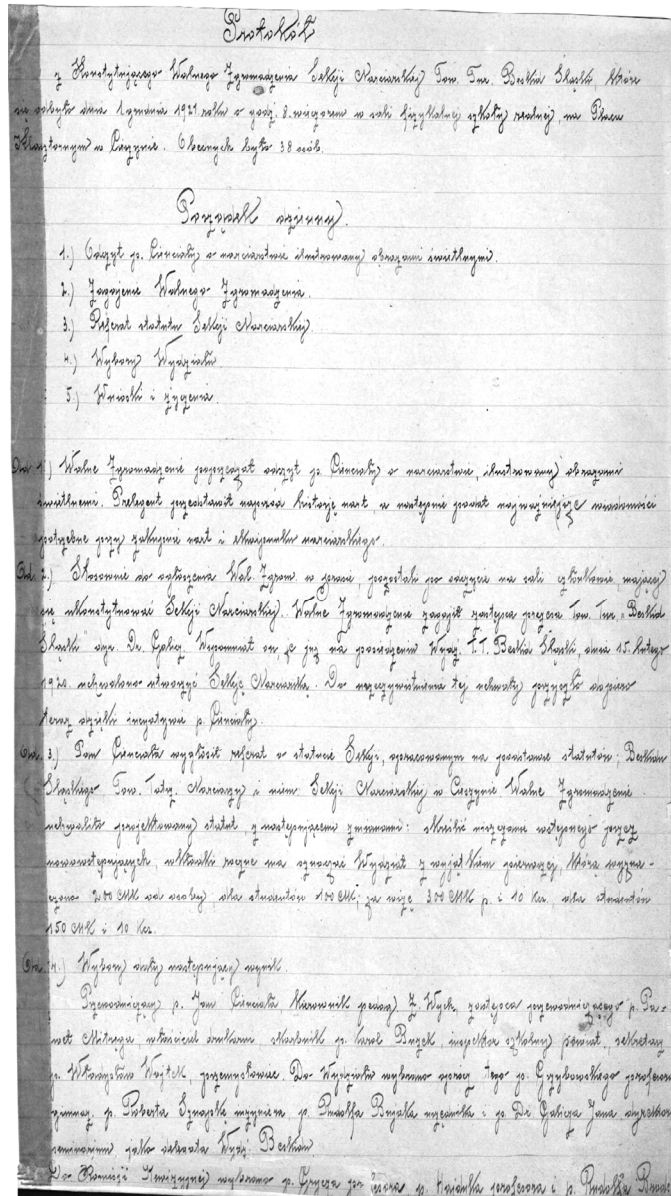 Protokół
z Konstytującego Walnego Zgromadzenia Sekcji Narciarskiej Tow. Tur. Beskid Śląski, które
się odbyło dnia 1 grudnia 1921 roku o godz. 8. wieczorem w sali fizykalnej szkoły realnej, na Placu
Klasztornym w Cieszynie. Obecnych było 38 osób.
Porządek dzienny.
1.) Odczyt p. Cienciały o narciarstwie ilustrowany obrazami świetlnymi.
2.) Zagajenie Walnego Zgromadzenia.
3.) Referat statutu Sekcji Narciarskiej.
4.) Wybory Wydziału
5.) Wnioski i życzenia.
Od. 1.) Walne Zgromadzenie poprzedzał odczyt p. Cienciały o narciarstwie, ilustrowany obrazami
świetlnemi. Prelegent przedstawił naprzód historję nart a następnie podał najważniejsze wiadomości
potrzebne przy zakupnie nart i ekwipunku narciarskiego.
Od. 2.) Stosownie do ogłoszenia Wal. Zgrom. w prasie, pozostali po odczycie na sali członkowie, mający
się ukonstytuować Sekcji Narciarskiej. Walne Zgromadzenie zagajił zastępca prezesa Tow. Tur. "Beskid
Śląski" dyr. Dr. Galicz. Wspomniał on, że już na posiedzeniu Wydz. T.T. Beskid Śląski, dnia 15. lutego
1920. uchwalono utworzyć Sekcję Narciarską. Do urzeczywistnienia tej uchwały przyszło dopiero
teraz dzięki inicjatywie p. Cienciały.
Od. 3.) Pan Cienciała wygłosił referat o statucie Sekcji, opracowanym na podstawie statutów; Beskidu
Śląskiego Tow. Tatrz. Narciarzy i niem. Sekcji Narciarskiej w Cieszynie Walne Zgromadzenie
uchwaliło projektowany statut, z następującemi zmianami: skreślić wpisowego przez
nowowstępujących, wkładki roczne ma oznaczać Wydział z wyjątkiem pierwszej, którą wyzna-
czono 200 MK od osoby, dla studentów 100 MK; 300 MK p. i 10 Kcz. dla studentów
150 MK i 10 Kcz.
Od. 4.) Wybory dały następujący wynik.
Przewodniczący p. Jan Cienciała, kierownik Z Wych, zastępca przewodniczącego p. Pa-
weł Mitręga, właściciel drukarni, skarbnik p. Karol Buzek, inspektor szkolny powiat. sekretarz
p. Władysław Wojtek, przemysłowiec. Do Wydziału wybrano oprócz tego p. Grzybowskiego profesora
gimnaz. p. Roberta Sznapkę inżyniera p. Rudolfa Bujaka urzędnika i p. Dr. Galicza Jana dyrektora
seminarjum jako delegata Wydz. Beskidu.
Do Komisji Rewizyjnej wybrano p. p. Hajduka profesora i p. Rudolfa